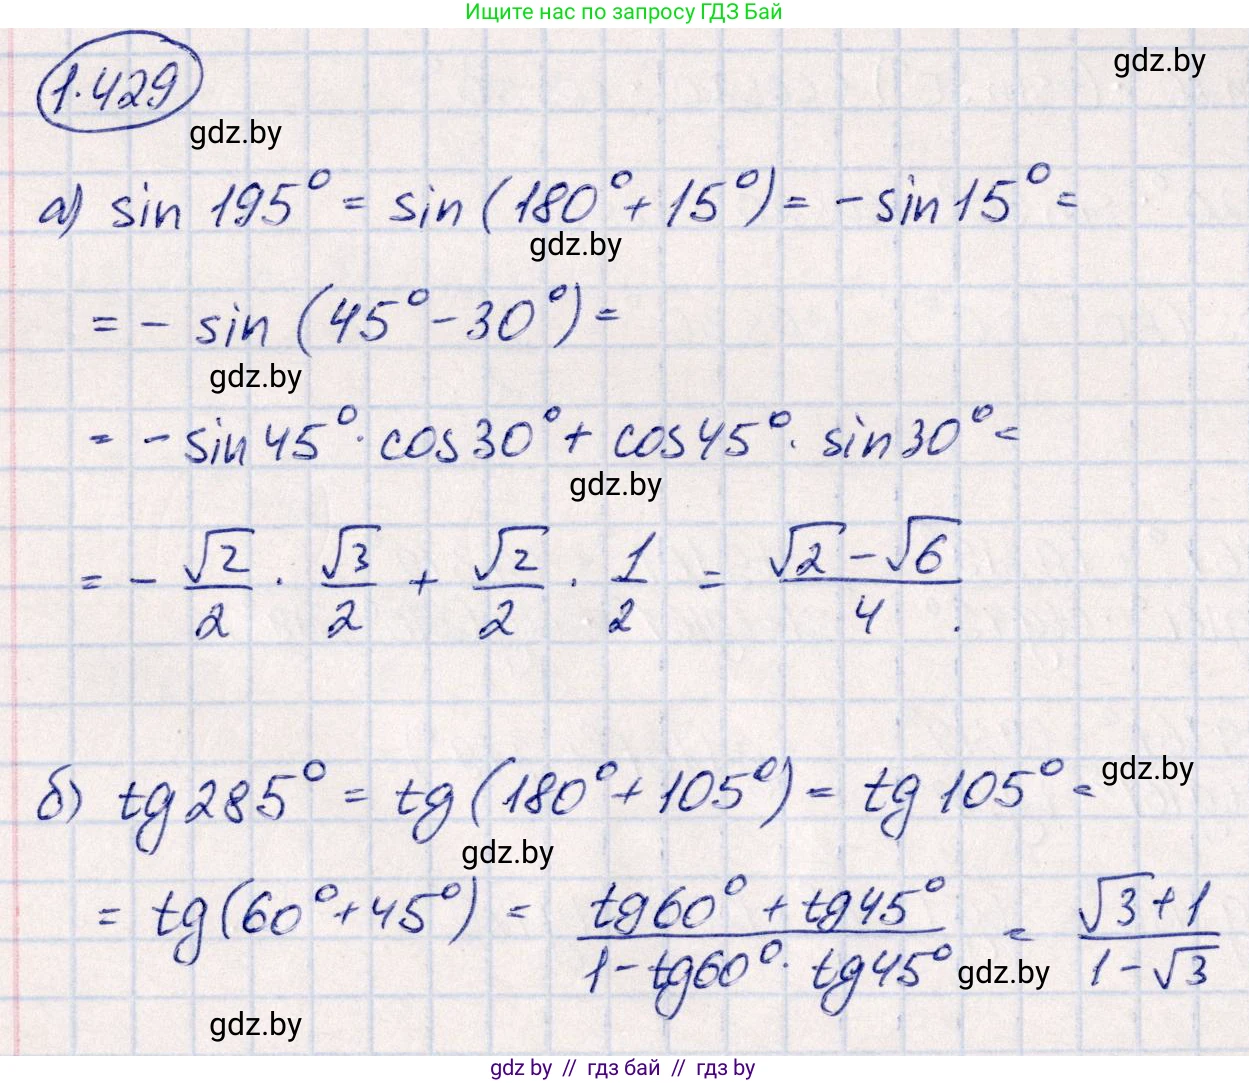 Ищите нас по запросу ГДЗ Бай
1.429
gdz.by
gdz.by
а) sin 195° = sin (180° + 15°) = - sin 15° =
gdz.by
= - sin (45° - 30°) =
gdz.by
= - sin 45° · cos 30° + cos 45° · sin 30° =
gdz.by
= - √2/2 · √3/2 + √2/2 · 1/2 = (√2 - √6)/4.
б) tg 285° = tg (180° + 105°) = tg 105° =
gdz.by
gdz.by
= tg (60° + 45°) = (tg 60° + tg 45°)/(1 - tg 60° · tg 45°) = (√3 + 1)/(1 - √3)
gdz.by
gdz.by
gdz by // гдз бай // гдз by